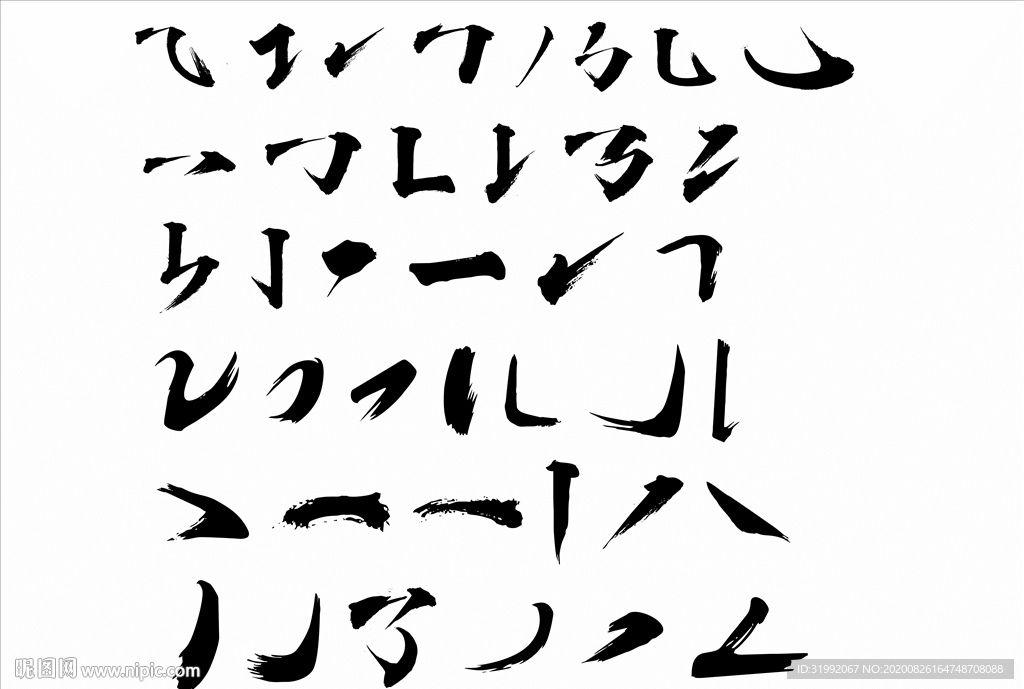 昵图网 www.nipic.com
ID:31992067 NO:20200826164748708088